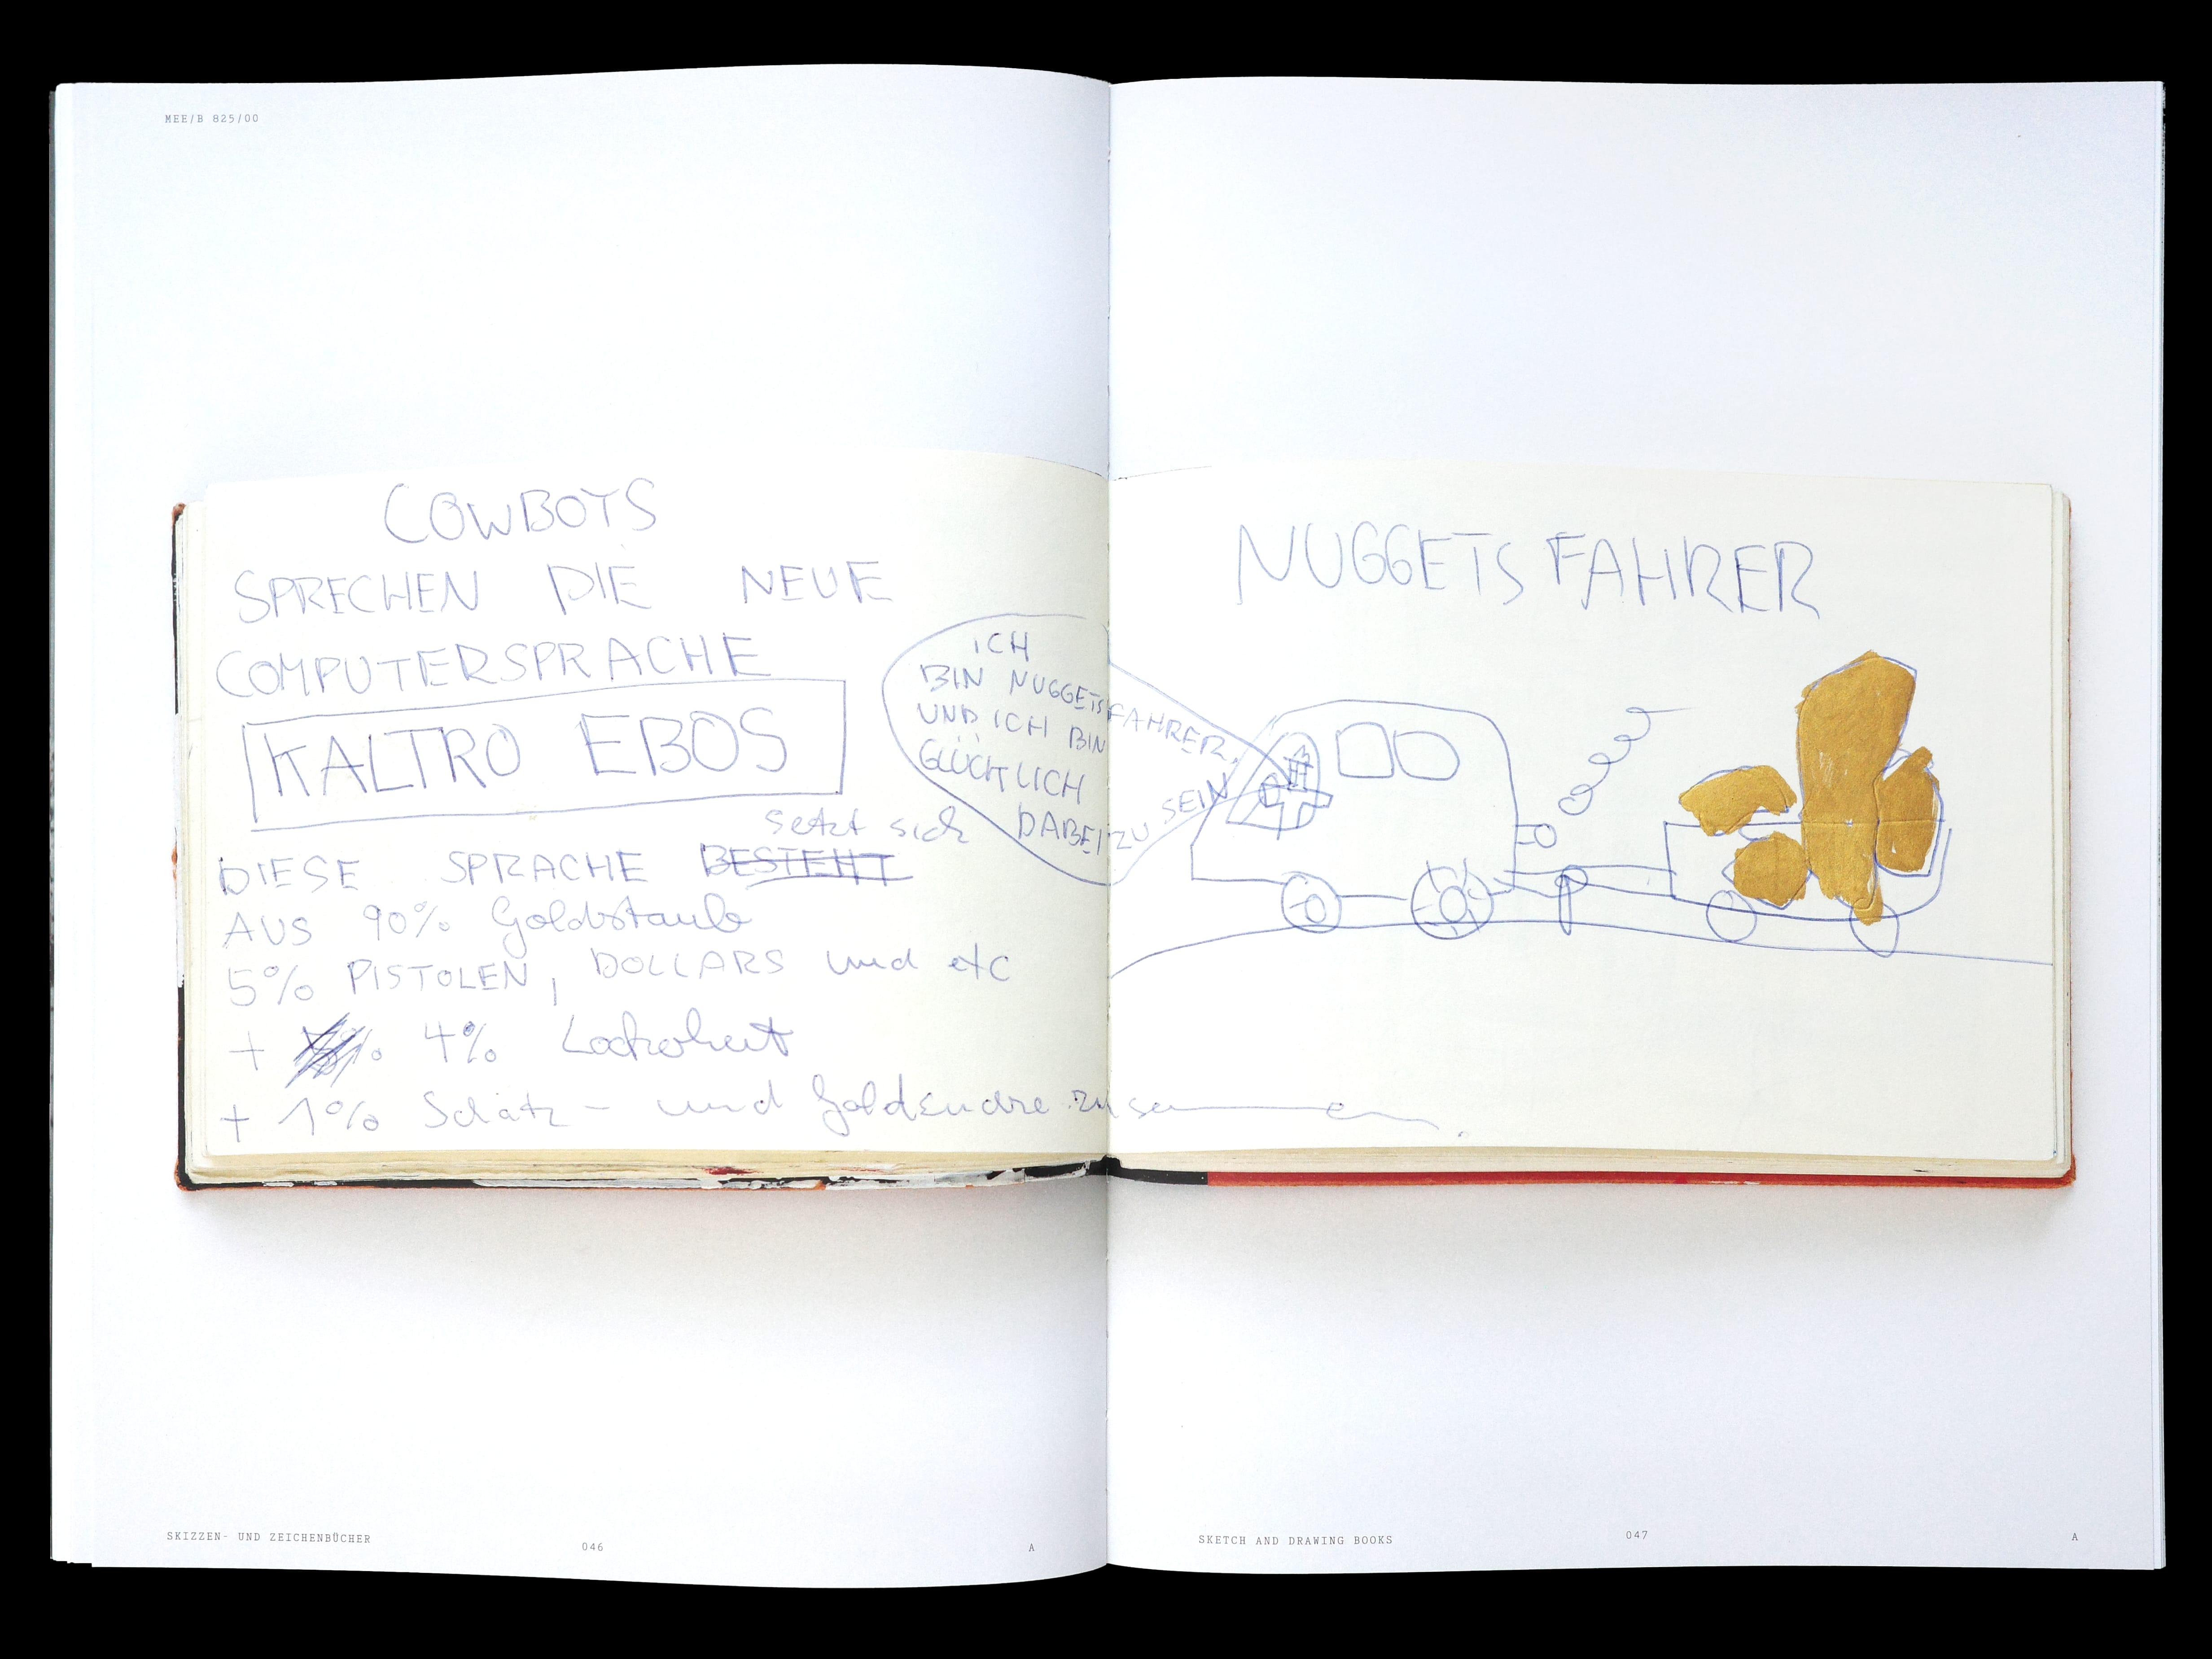 MEE/B 825/00
COWBOYS
SPRECHEN DIE NEUE
COMPUTERSPRACHE
KALTRO EBOS
setzt sich
DIESE SPRACHE BESTEHT
AUS 90% Goldstaub
5% PISTOLEN, DOLLARS und etc
+ 4% Lockerheit
+ 1% Schatz- und Goldsuche zusammen.
ICH
BIN NUGGETSFAHRER,
UND ICH BIN
GLÜCKLICH
DABEI ZU SEIN
NUGGETSFAHRER
SKIZZEN- UND ZEICHENBÜCHER
046
A
SKETCH AND DRAWING BOOKS
047
A